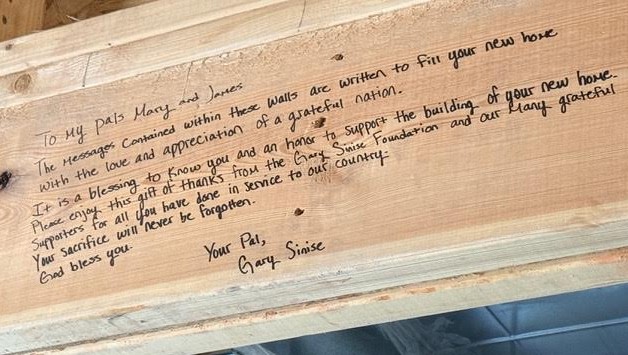 To My pals Mary and James
The Messages contained within these walls are written to fill your new home
with the love and appreciation of a grateful nation.
It is a blessing to know you and an honor to support the building of your new home.
Please enjoy this gift of thanks from the Gary Sinise Foundation and our Many grateful
Supporters for all you have done in service to our country.
Your sacrifice will never be forgotten.
God bless you.
Your Pal,
Gary Sinise